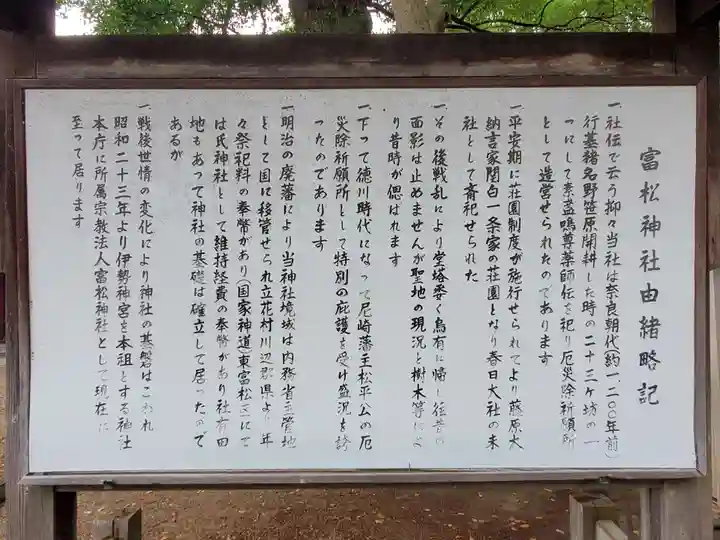 富松神社由緒略記
一社伝で云う抑々当社は奈良朝代約一、二〇〇年前)
行基猪名野笹原開耕した時の二十三ヶ坊の一
つにして素盞鳴尊薬師伝を祀り厄災除祈願所
として造営せられたのであります
一平安期に荘園制度が施行せられてより藤原大
納言家関白一条家の荘園となり春日大社の末
社として斉祀せられた
一その後戦乱により堂塔委く烏有に帰し往昔の
面影は止めませんが聖地の現況と樹木等によ
り昔時が偲ばれます
一下って徳川時代になって尼崎藩主松平公の厄
災除祈願所として特別の庇護を受け盛況を誇
ったのであります
一明治の廃藩により当神社境域は内務省主管地
として国に移管せられ立花村川辺郡県より年
々祭祀料の奉幣があり(国家神道)東富松区にて
は氏神社として維持経費の奉幣があり社有田
地もあって神社の基礎は確立して居ったので
あるが
一戦後世情の変化により神社の基盤はこわれ
昭和二十三年より伊勢神宮を本祖とする神社
本庁に所属宗教法人富松神社として現在に
至って居ります